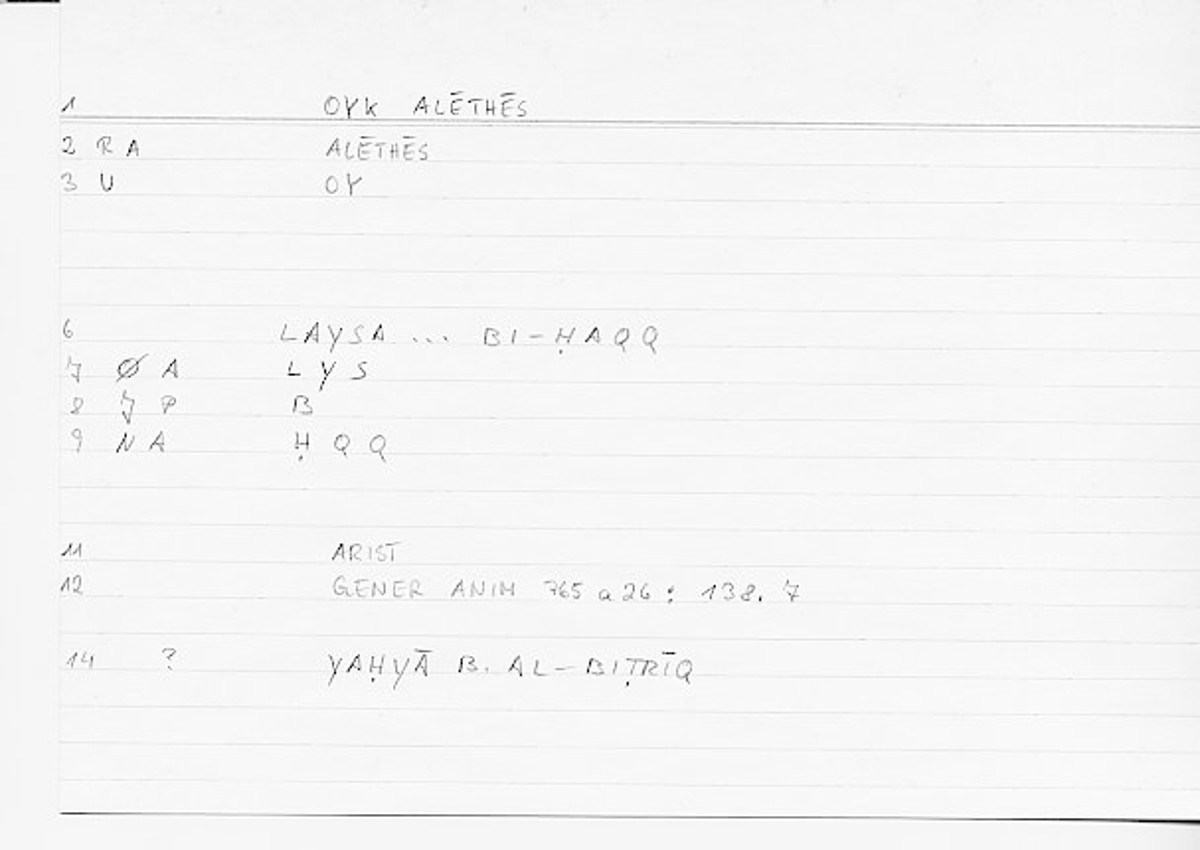 1 OYK ALĒTHĒS
2 R A ALĒTHĒS
3 U OY
6 LAYSA ... BI-ḤAQQ
7 Ø A L Y S
8 7 P B
9 N A Ḥ Q Q
11 ARIST
12 GENER ANIM 765 a 26 : 138. 7
14 ? YAḤYĀ B. AL-BIṬRĪQ